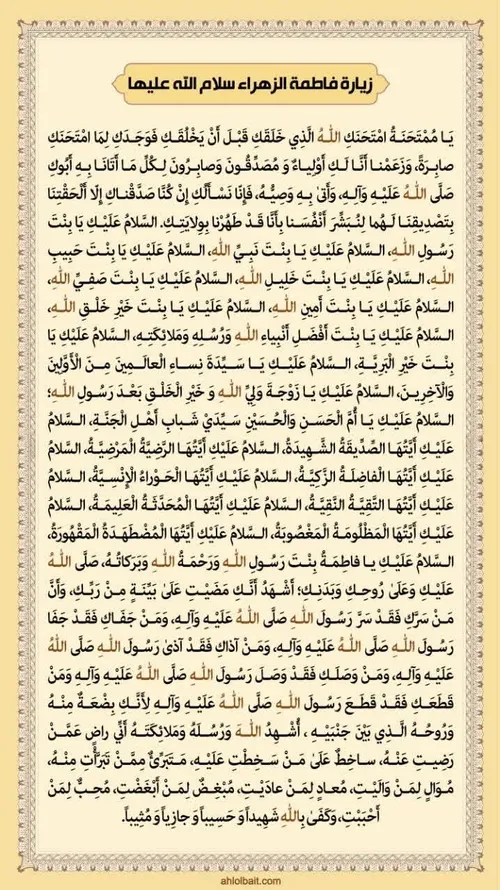 زيارة فاطمة الزهراء سلام الله عليها
يَا مُمْتَحَنَةُ امْتَحَنَكِ اللهُ الَّذِي خَلَقَكِ قَبْلَ أَنْ يَخْلُقَكِ فَوَجَدَكِ لِمَا امْتَحَنَكِ
صابِرَةً، وَزَعَمْنا أَنَّا لَكِ أَوْلِياءٌ وَ مُصَدِّقُونَ وَصابِرُونَ لِكُلِّ مَا أَتَانَا بِهِ أَبُوكِ
صَلَّى اللهُ عَلَيْهِ وَآلِهِ، وَأَتىٰ بِهِ وَصِيُّهُ، فَإِنَا نَسْأَلُكِ إِنْ كُنَّا صَدَّقْناكِ إِلا أَلْحَقْتِنا
بِتَصْدِيقِنَا لَهُما لِنُبَشِّرَ أَنْفُسَنا بِأَنَّا قَدْ طَهُرْنا بِوِلايَتِكِ. السَّلامُ عَلَيْكِ يَا بِنْتَ
رَسُولِ اللهِ، السَّلامُ عَلَيْكِ يَا بِنْتَ نَبِيِّ اللهِ، السَّلامُ عَلَيْكِ يَا بِنْتَ حَبِيبِ
اللهِ، السَّلامُ عَلَيْكِ يَا بِنْتَ خَلِيلِ اللهِ، السَّلامُ عَلَيْكِ يَا بِنْتَ صَفِيِّ اللهِ،
السَّلامُ عَلَيْكِ يَا بِنْتَ أَمِينِ اللهِ، السَّلامُ عَلَيْكِ يَا بِنْتَ خَيْرِ خَلْقِ اللهِ،
السَّلامُ عَلَيْكِ يَا بِنْتَ أَفْضَلِ أَنْبِياءِ اللهِ وَرُسُلِهِ وَمَلائِكَتِهِ، السَّلامُ عَلَيْكِ يَا
بِنْتَ خَيْرِ الْبَرِيَّةِ، السَّلامُ عَلَيْكِ يَا سَيِّدَةَ نِساءِ الْعالَمِينَ مِنَ الأَوَّلِينَ
وَالْآخِرِينَ، السَّلامُ عَلَيْكِ يَا زَوْجَةَ وَلِيِّ اللهِ وَ خَيْرِ الْخَلْقِ بَعْدَ رَسُولِ اللهِ؛
السَّلامُ عَلَيْكِ يَا أُمَّ الْحَسَنِ وَالْحُسَيْنِ سَيِّدَيْ شَبابِ أَهْلِ الْجَنَّةِ، السَّلامُ
عَلَيْكِ أَيَّتُهَا الصِّدِّيقَةُ الشَّهِيدَةُ، السَّلامُ عَلَيْكِ أَيَّتُهَا الرَّضِيَّةُ الْمَرْضِيَّةُ، السَّلامُ
عَلَيْكِ أَيَّتُهَا الْفاضِلَةُ الزَّكِيَّةُ، السَّلامُ عَلَيْكِ أَيَّتُهَا الْحَوْراءُ الْإِنْسِيَّةُ، السَّلامُ
عَلَيْكِ أَيَّتُهَا التَّقِيَّةُ النَّقِيَّةُ، السَّلامُ عَلَيْكِ أَيَّتُهَا الْمُحَدَّثَةُ الْعَلِيمَةُ، السَّلامُ
عَلَيْكِ أَيَّتُهَا الْمَظْلُومَةُ الْمَغْصُوبَةُ، السَّلامُ عَلَيْكِ أَيَّتُهَا الْمُضْطَهَدَةُ الْمَقْهُورَةُ،
السَّلامُ عَلَيْكِ يا فاطِمَةُ بِنْتَ رَسُولِ اللهِ وَرَحْمَةُ اللهِ وَبَرَكاتُهُ، صَلَّى اللهُ
عَلَيْكِ وَعَلَىٰ رُوحِكِ وَبَدَنِكِ؛ أَشْهَدُ أَنَّكِ مَضَيْتِ عَلَىٰ بَيِّنَةٍ مِنْ رَبِّكِ، وَأَنَّ
مَنْ سَرَّكِ فَقَدْ سَرَّ رَسُولَ اللهِ صَلَّى اللهُ عَلَيْهِ وَآلِهِ، وَمَنْ جَفَاكِ فَقَدْ جَفَا
رَسُولَ اللهِ صَلَّى اللهُ عَلَيْهِ وَآلِهِ، وَمَنْ آذاكِ فَقَدْ آذىٰ رَسُولَ اللهِ صَلَّى اللهُ
عَلَيْهِ وَآلِهِ، وَمَنْ وَصَلَكِ فَقَدْ وَصَلَ رَسُولَ اللهِ صَلَّى اللهُ عَلَيْهِ وَآلِهِ وَمَنْ
قَطَعَكِ فَقَدْ قَطَعَ رَسُولَ اللهِ صَلَّى اللهُ عَلَيْهِ وَآلِهِ لِأَنَّكِ بِضْعَةٌ مِنْهُ
وَرُوحُهُ الَّذِي بَيْنَ جَنْبَيْهِ ، أُشْهِدُ اللهَ وَرُسُلَهُ وَمَلائِكَتَهُ أَنِّي راضٍ عَمَّنْ
رَضِيتِ عَنْهُ، ساخِطٌ عَلَىٰ مَنْ سَخِطْتِ عَلَيْهِ، مُتَبَرِّئٌ مِمَّنْ تَبَرَّأْتِ مِنْهُ،
مُوَالٍ لِمَنْ وَالَيْتِ، مُعادٍ لِمَنْ عادَيْتِ، مُبْغِضٌ لِمَنْ أَبْغَضْتِ، مُحِبٌّ لِمَنْ
أَحْبَبْتِ، وَكَفَىٰ بِاللهِ شَهِيداً وَ حَسِيباً وَ جازِياً وَ مُثِيباً.
ahlolbait.com